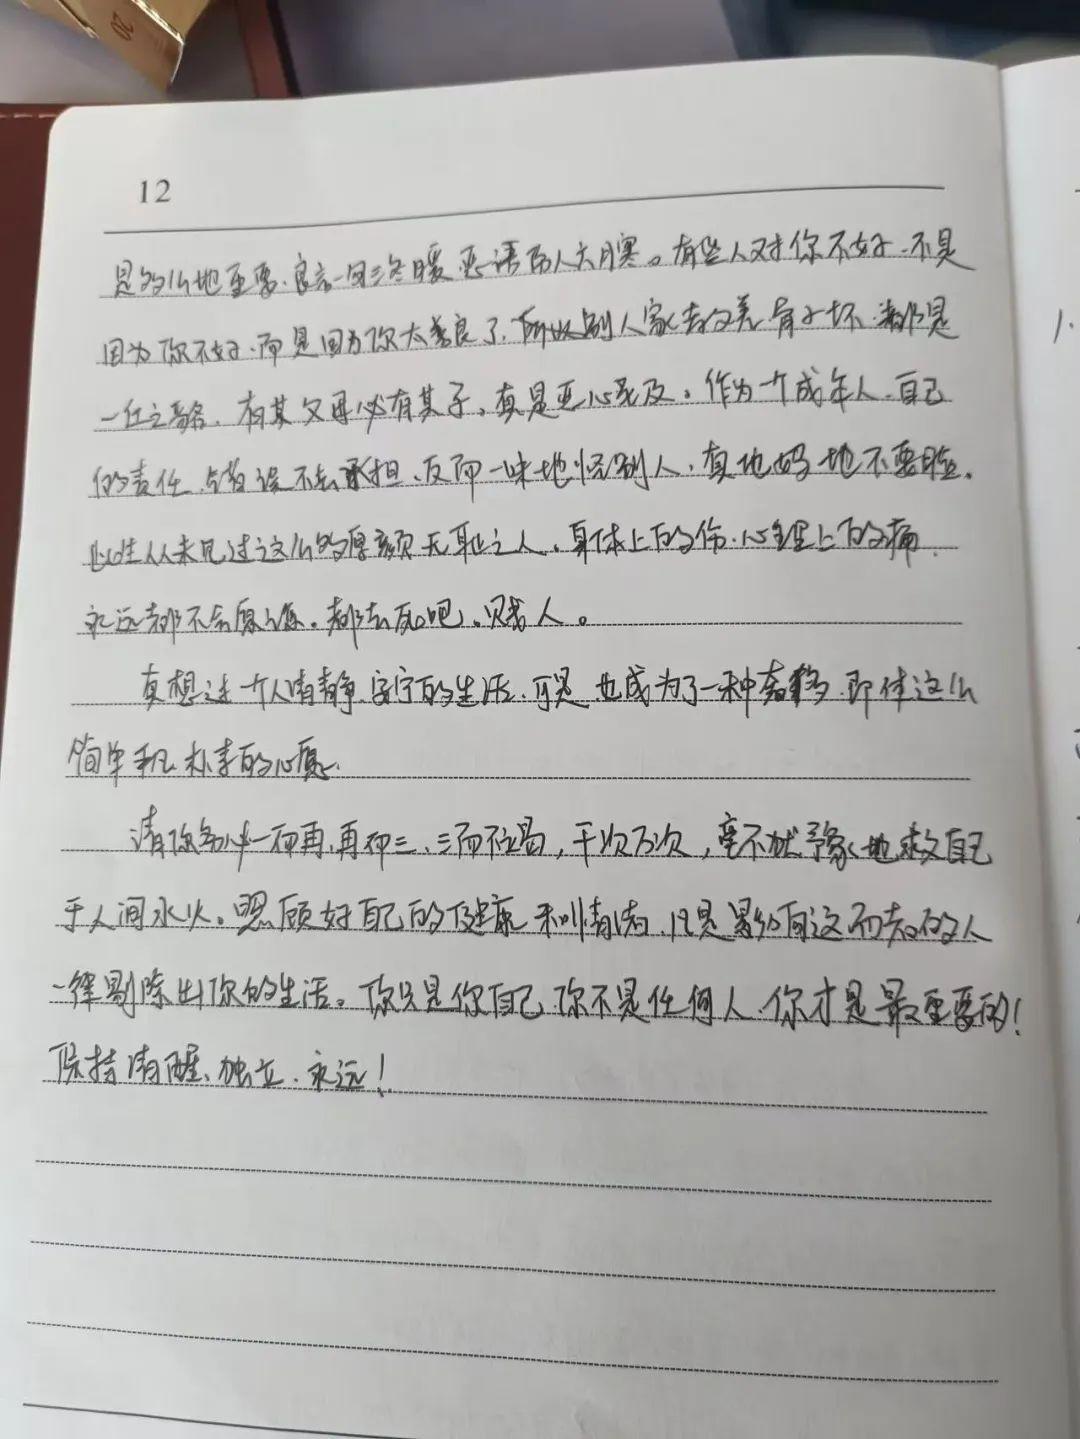 20
12
是多么地重要。良言一句三冬暖,恶语伤人六月寒。有些人对你不好,不是
因为你不好,而是因为你太善良了,所以别人家去欺
一丘之貉。有其父母必有其子。真是恶心至极。作为一个成年人,自己
的责任、错误不去承担、反而一味地怪别人,真他妈地不要脸。
此生从未见过这么的厚颜无耻之人。身体上的伤,心理上的痛
永远都不会原谅。都去死吧。贱人。
真想过一个人清静、安宁的生活,可是也成为了一种奢侈,即使这么
简单和朴素的心愿。
请你务必一而再,再而三,三而不竭,千次万次,毫不犹豫地救自己
于人间水火。照顾好自己的健康和情绪,凡是影响这两者的人
一律剔除出你的生活。你只是你自己,你不是任何人,你才是最重要的!
保持清醒、独立,永远!
1.